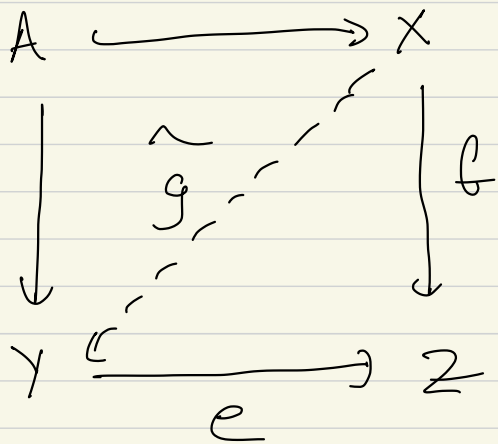 A X
g̃ f
Y Z
e